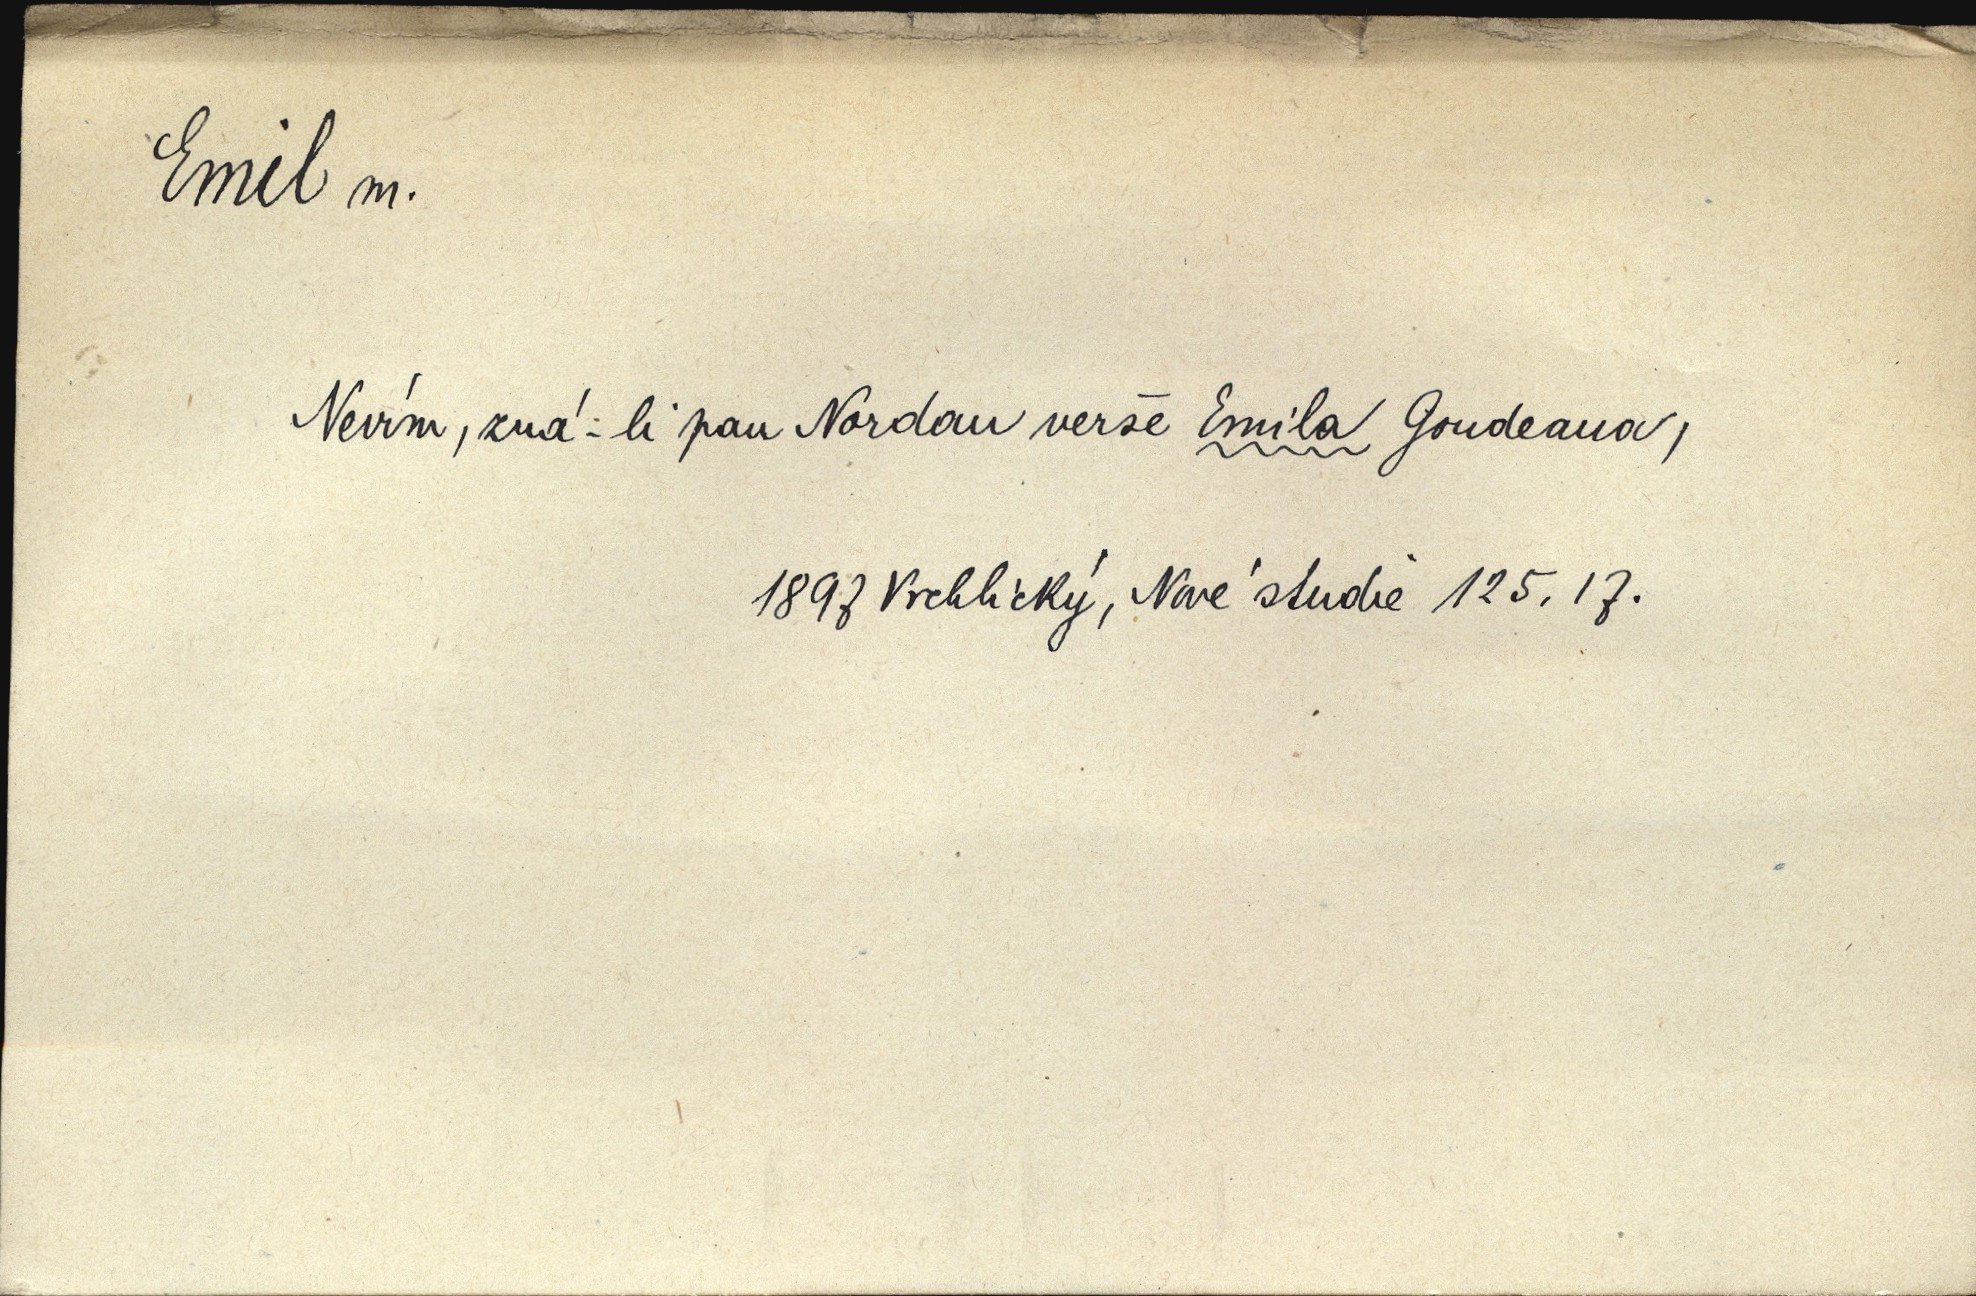 Emil m.
Nevím, zná-li pan Nordau verše Emila Goudeaua,
1897 Vrchlický, Nové studie 125. 17.